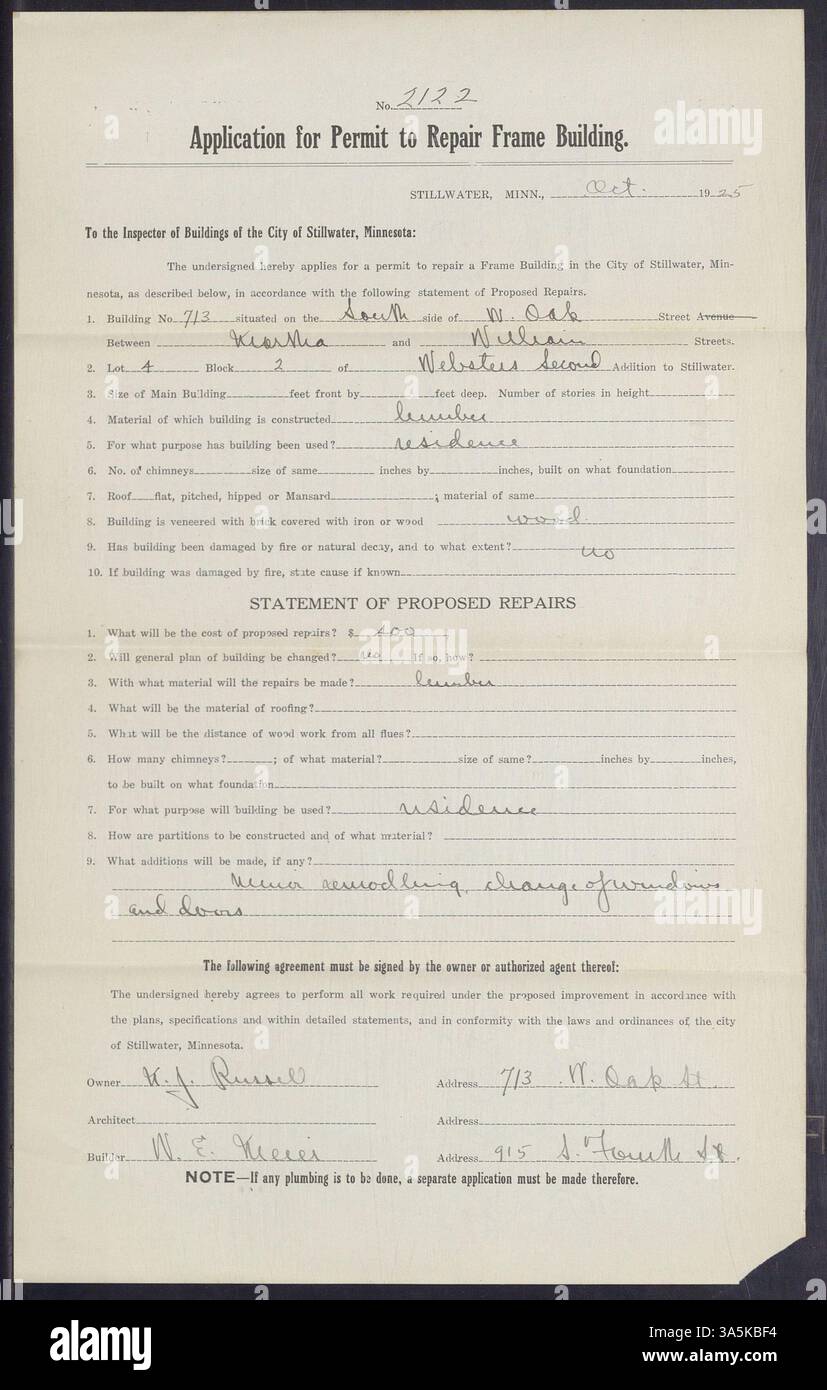 No. 2122
Application for Permit to Repair Frame Building.
STILLWATER, MINN., Oct. 1925
To the Inspector of Buildings of the City of Stillwater, Minnesota:
The undersigned hereby applies for a permit to repair a Frame Building in the City of Stillwater, Min-
nesota, as described below, in accordance with the following statement of Proposed Repairs.
1. Building No. 713 situated on the South side of W. Oak Street Avenue
Between Martha and William Streets.
2. Lot 4 Block 2 of Websters Second Addition to Stillwater.
3. Size of Main Building feet front by feet deep. Number of stories in height
4. Material of which building is constructed lumber
5. For what purpose has building been used? residence
6. No. of chimneys size of same inches by inches, built on what foundation
7. Roof flat, pitched, hipped or Mansard ; material of same
8. Building is veneered with brick covered with iron or wood wood.
9. Has building been damaged by fire or natural decay, and to what extent? no
10. If building was damaged by fire, state cause if known
STATEMENT OF PROPOSED REPAIRS
1. What will be the cost of proposed repairs? $
2. Will general plan of building be changed? no If so, how?
3. With what material will the repairs be made? lumber
4. What will be the material of roofing?
5. What will be the distance of wood work from all flues?
6. How many chimneys? ; of what material? size of same? inches by inches,
to be built on what foundation
7. For what purpose will building be used? residence
8. How are partitions to be constructed and of what material?
9. What additions will be made, if any?
Minor remodling, change of windows
and doors
The following agreement must be signed by the owner or authorized agent thereof:
The undersigned hereby agrees to perform all work required under the proposed improvement in accordance with
the plans, specifications and within detailed statements, and in conformity with the laws and ordinances of the city
of Stillwater, Minnesota.
Owner K. J. Russell Address 713 W. Oak St.
Architect Address
Builder W. E. Meier Address 915 S. Fourth St.
NOTE—If any plumbing is to be done, a separate application must be made therefore.
alamy
Image ID: 3A5KBF4
www.alamy.com